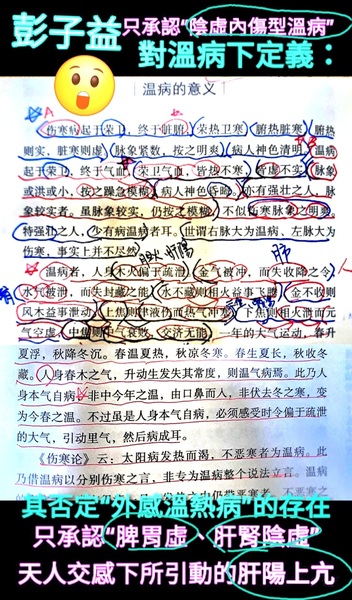 彭子益只承認“陰虛內傷型溫病”
對溫病下定義：
温病的意义
A
伤寒病起于荣卫，终于脏腑。荣热卫寒，腑热脏寒，腑热
则实，脏寒则虚，脉象紧数，按之明爽，病人神色清明。温病
起于荣卫，终于气血。荣卫气血，皆热不寒，皆虚不实，脉象
或洪或小，按之躁急模糊，病人神色昏晦。亦有强壮之人，脉
象较实者。虽脉象较实，仍按之模糊，不似伤寒脉象之明爽。
特强壮之人，少有病温病者耳。世谓右脉大为温病、左脉大为
伤寒，事实上并不尽然。
肺
温病者，人身木火偏于疏泄，金气被冲，而失收降之令，
水气被泄，而失封藏之能。水不藏则相火益事飞腾，金不收则
风木益事泄动。上焦则津液伤而热气冲塞，下焦则相火泄而元
气空虚，中焦则中气衰败，交济无能。一年的大气运动，春升
夏浮，秋降冬沉。春温夏热，秋凉冬寒。春生夏长，秋收冬
藏。人身春木之气，升动生发失其常度，则温气病焉。此乃人
身本气自病，非中今年之温，由口鼻而人，非伏去冬之寒，变
为今春之温。不过虽是人身本气自病，必须感受时令偏于疏泄
的大气，引动里气，然后病成耳。
《伤寒论》云：太阳病发热而渴，不恶寒者为温病。此
乃借温病以分别伤寒之言，非专为温病整个说法立言。温病的
其否定“外感溫熱病”的存在
只承認“脾胃虛、肝腎陰虛”
天人交感下所引動的肝陽上亢